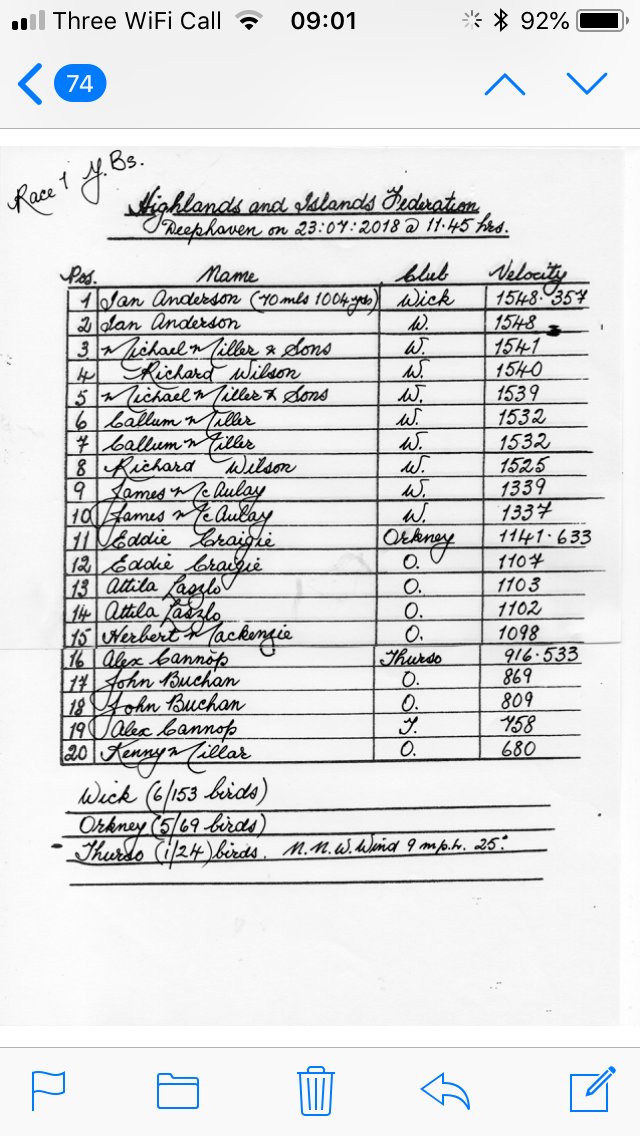 Three WiFi Call 09:01 92%
74
Race 1 Y.Bs.
Highlands and Islands Federation
Deephaven on 23:07:2018 @ 11.45 hrs.
Pos. Name Club Velocity
1 Ian Anderson (70 mls 1004 yds) Wick 1548.357
2 Ian Anderson W. 1548
3 Michael Miller & Sons W. 1541
4 Richard Wilson W. 1540
5 Michael Miller & Sons W. 1539
6 Callum Miller W. 1532
7 Callum Miller W. 1532
8 Richard Wilson W. 1525
9 James McAulay W. 1339
10 James McAulay W. 1337
11 Eddie Craigie Orkney 1141.633
12 Eddie Craigie O. 1107
13 Attila Laszlo O. 1103
14 Attila Laszlo O. 1102
15 Herbert Mackenzie O. 1098
16 Alex Cannop Thurso 916.533
17 John Buchan O. 869
18 John Buchan O. 809
19 Alex Cannop T. 758
20 Kenny Millar O. 680
Wick (6/153 birds)
Orkney (5/69 birds)
Thurso (1/24) birds. N.N.W. Wind 9 m.p.h. 25°